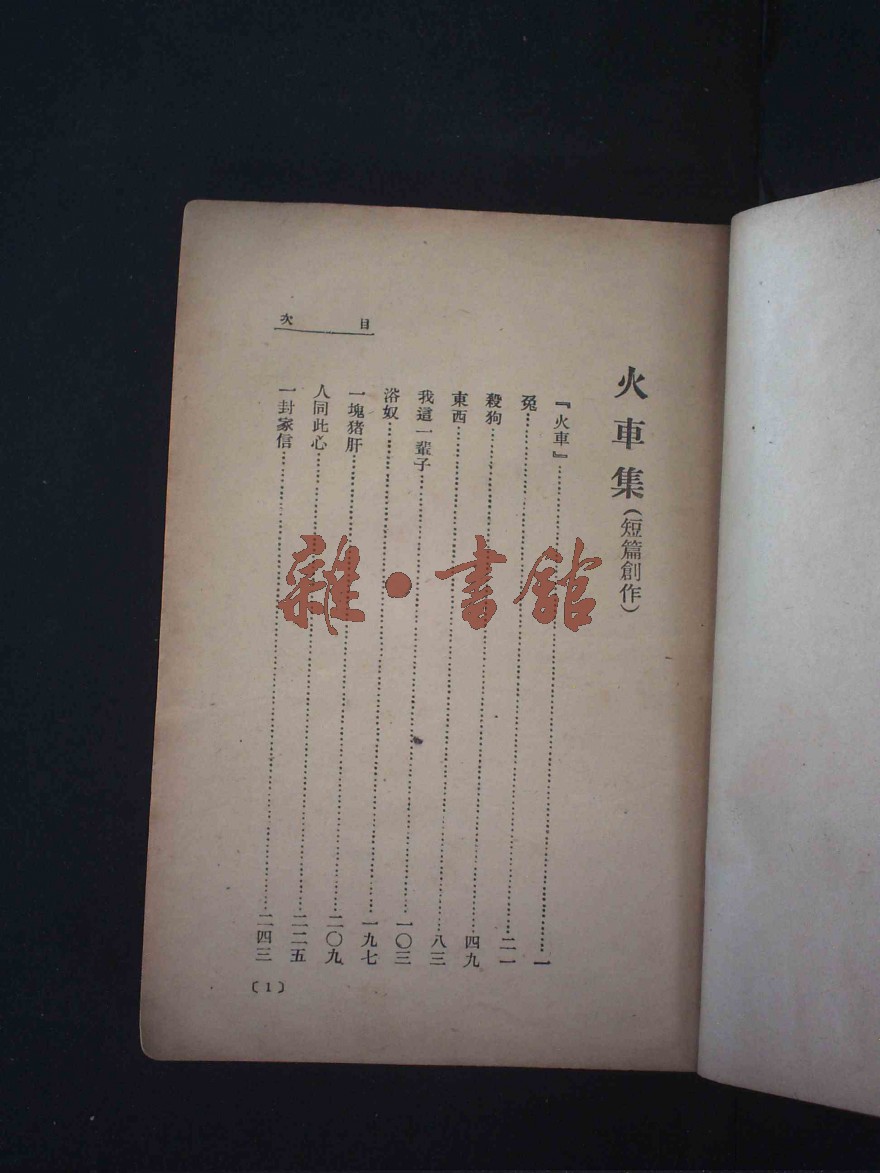 火車集(短篇創作)
目次
『火車』……一
兔……二一
殺狗……四九
東西……八三
我這一輩子……一〇三
浴奴……一九七
一塊猪肝……二〇九
人同此心……二二五
一封家信……二四三
〔1〕
雜·書館